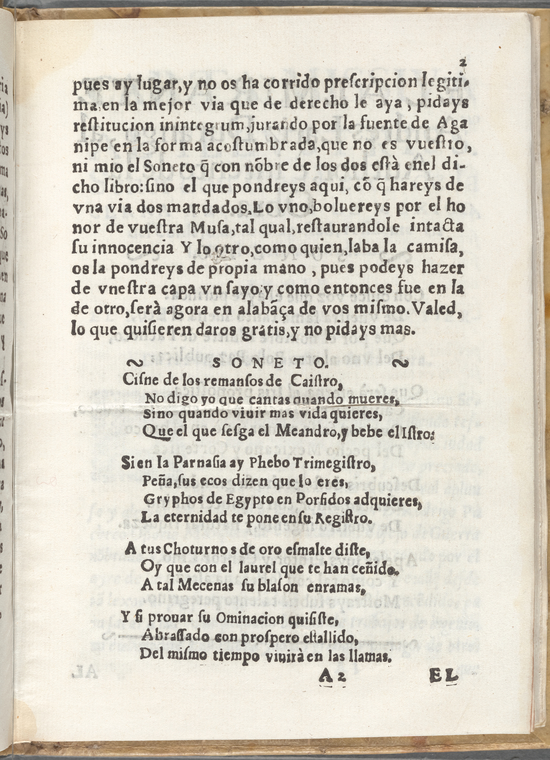 2
pues ay lugar,y no os ha corrido prescripcion legiti-
ma,en la mejor via que de derecho le aya, pidays
restitucion inintegrum,jurando por la fuente de Aga
nipe en la forma acostumbrada,que no es vuestro,
ni mio el Soneto q̃ con nõbre de los dos està enel di-
cho libro:sino el que pondreys aqui, cõ q̃ hareys de
vna via dos mandados.Lo vno,boluereys por el ho
nor de vuestra Musa,tal qual,restaurandole intacta
su innocencia Y lo otro,como quien,laba la camisa,
os la pondreys de propia mano, pues podeys hazer
de vnestra capa vn sayo:y como entonces fue en la
de otro,serà agora en alabãça de vos mismo. Valed,
lo que quisieren daros gratis,y no pidays mas.
SONETO.
Cisne de los remansos de Caistro,
No digo yo que cantas quando mueres,
Sino quando viuir mas vida quieres,
Que el que sesga el Meandro,y bebe el Istro:
Si en la Parnasia ay Phebo Trimegistro,
Peña,sus ecos dizen que lo eres,
Gryphos de Egypto en Porfidos adquieres,
La eternidad te pone en su Registro.
A tus Choturnos de oro esmalte diste,
Oy que con el laurel que te han ceñido.
A tal Mecenas su blason enramas,
Y si prouar su Ominacion quisiste,
Abrassado con prospero estallido,
Del mismo tiempo viuirà en las llamas.
A2 EL